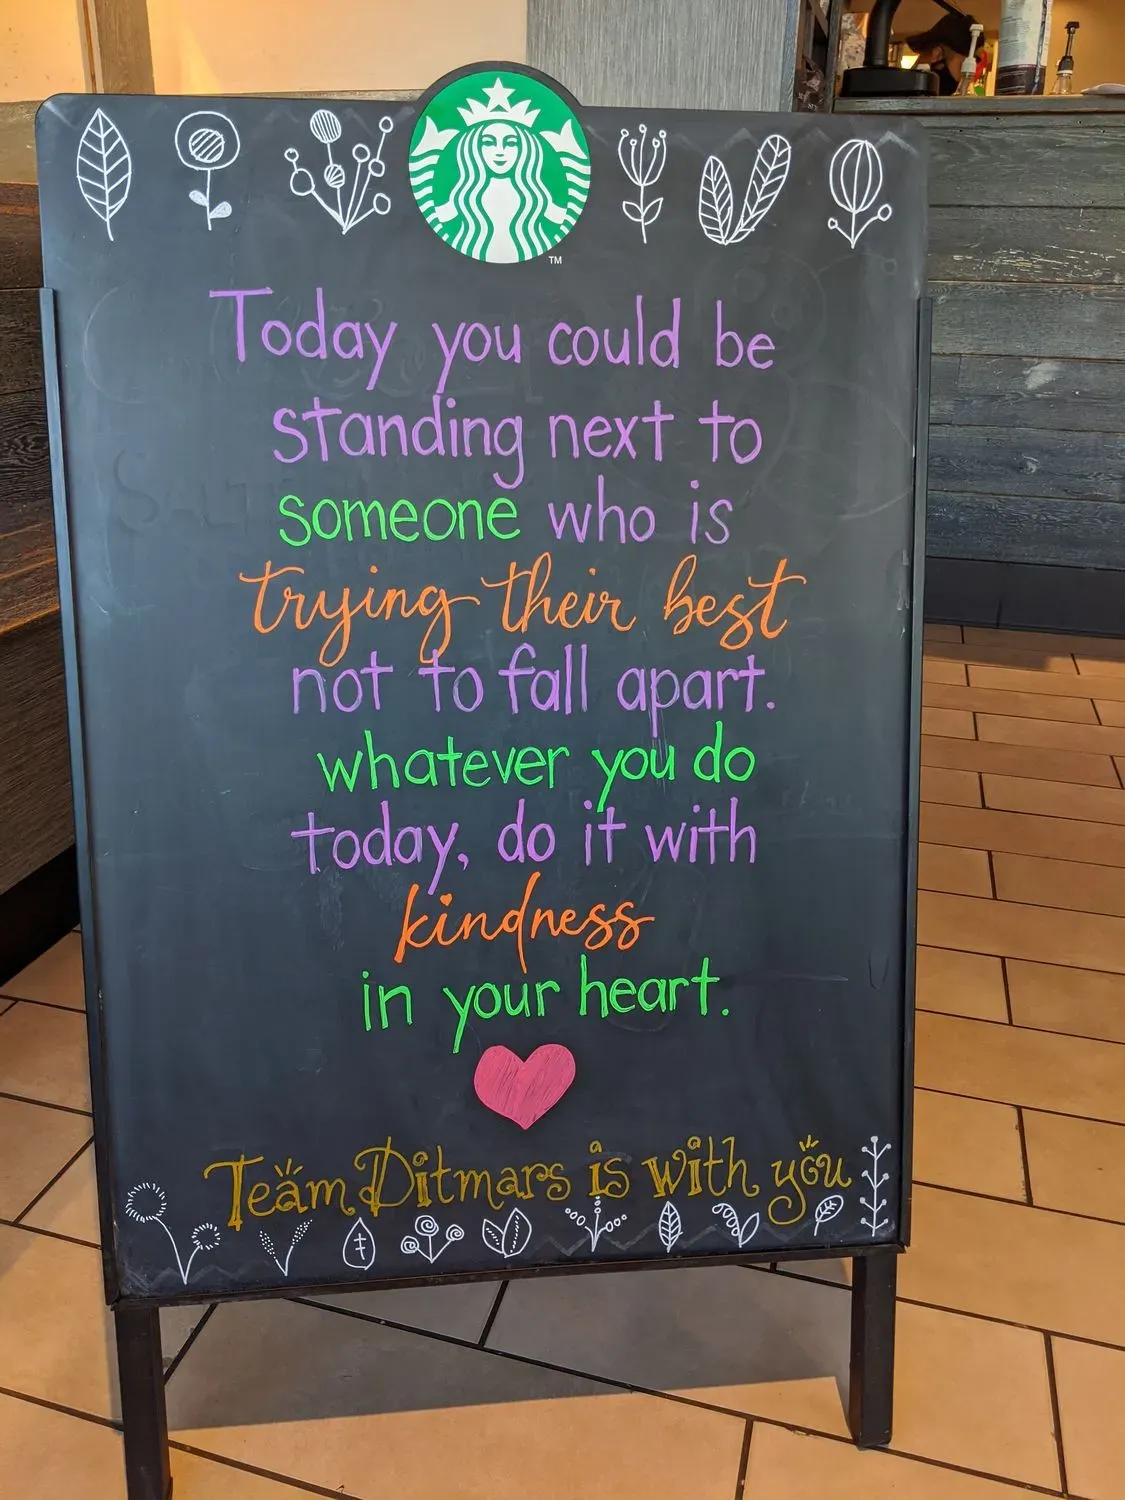 TM
Today you could be
standing next to
someone who is
trying their best
not to fall apart.
whatever you do
today, do it with
kindness
in your heart.
Team Ditmars is with you